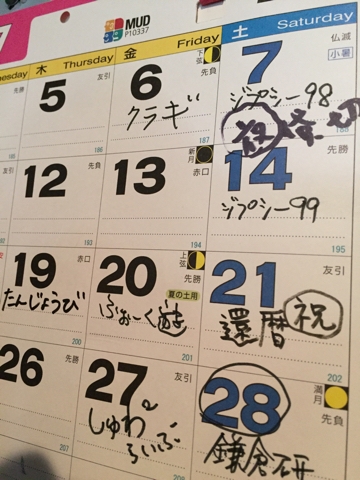 7
MUD
P10337
nesday
木 Thursday
金 Friday
土 Saturday
先勝
5
友引
6
下弦
先負
クラギ
187
7
仏滅
小暑
ジプシー98
188
友引
12
先負
193
13
新月
赤口
194
14
先勝
ジプシー99
195
19
赤口
たんじょうび
200
20
上弦
先勝
夏の土用
201
21
友引
還暦 祝
202
26
先勝
207
27
友引
しゅわ2
らいぶ
28
満月
先負
鎌倉研